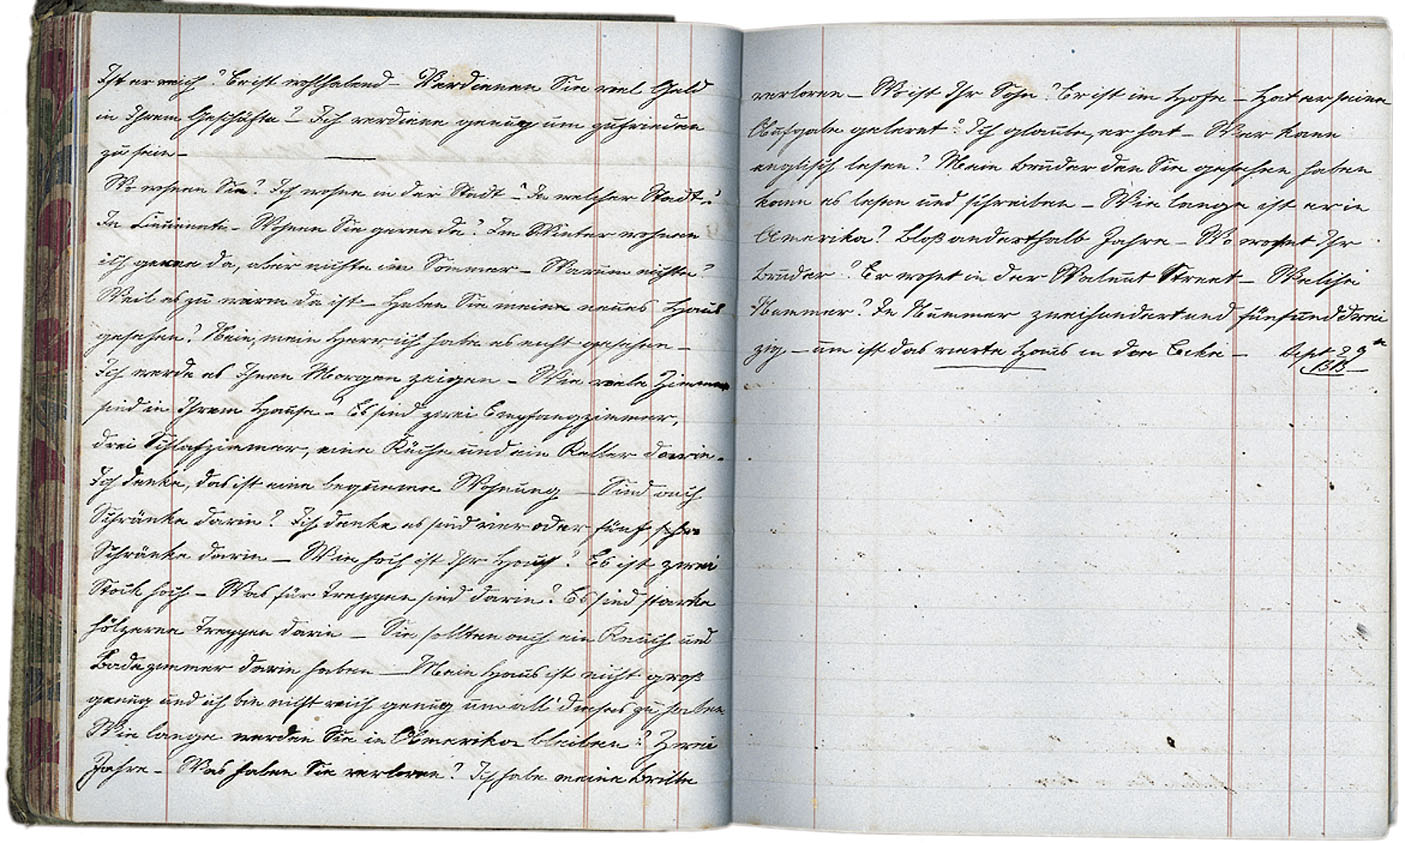 Ist er reich? Er ist wohlhabend – Verdienen Sie viel Geld
in Ihrem Geschäfte? – Ich verdiene genug um zufrieden
zu sein –
Wo wohnen Sie? Ich wohne in der Stadt – In welcher Stadt?
In Cincinnati – Wohnen Sie gerne da? Im Winter wohne
ich gerne da, aber nicht im Sommer – Warum nicht?
Weil es zu warm da ist – Haben Sie mein neues Haus
gesehen? Nein, mein Herr ich habe es nicht gesehen –
Ich werde es Ihnen Morgen zeigen – Wie viele Zimmer
sind in Ihrem Hause – Es sind zwei Empfangzimmer,
drei Schlafzimmer, eine Küche und ein Keller darin –
Ich denke, das ist eine bequeme Wohnung – Sind auch
Schränke darin? Ich denke es sind vier oder fünf
Schränke darin – Wie hoch ist Ihr Haus? Es ist zwei
Stock hoch – Was für Treppen sind darin? Es sind starke
hölzerne Treppen darin – Sie sollten auch ein Rauch und
Badezimmer darin haben – Mein Haus ist nicht groß
genug und ich bin nicht reich genug um all dieses zu haben
Wie lange werden Sie in Amerika bleiben? Zwei
Jahre – Was haben Sie verloren? Ich habe meine Brille
verloren – Wo ist Ihr Sohn? Er ist im Hofe – Hat er seine
Aufgabe gelernt? Ich glaube, er hat – Wer kann
englisch lesen? Mein Bruder den Sie gesehen haben
kann es lesen und schreiben – Wie lange ist er in
Amerika? Bloß anderthalb Jahre – Wo wohnt Ihr
Bruder? Er wohnt in der Walnut Street – Welche
Nummer? In Nummer zweihundert und fünfunddrei
zig – ist das vierte Haus in der Ecke – Sept 29